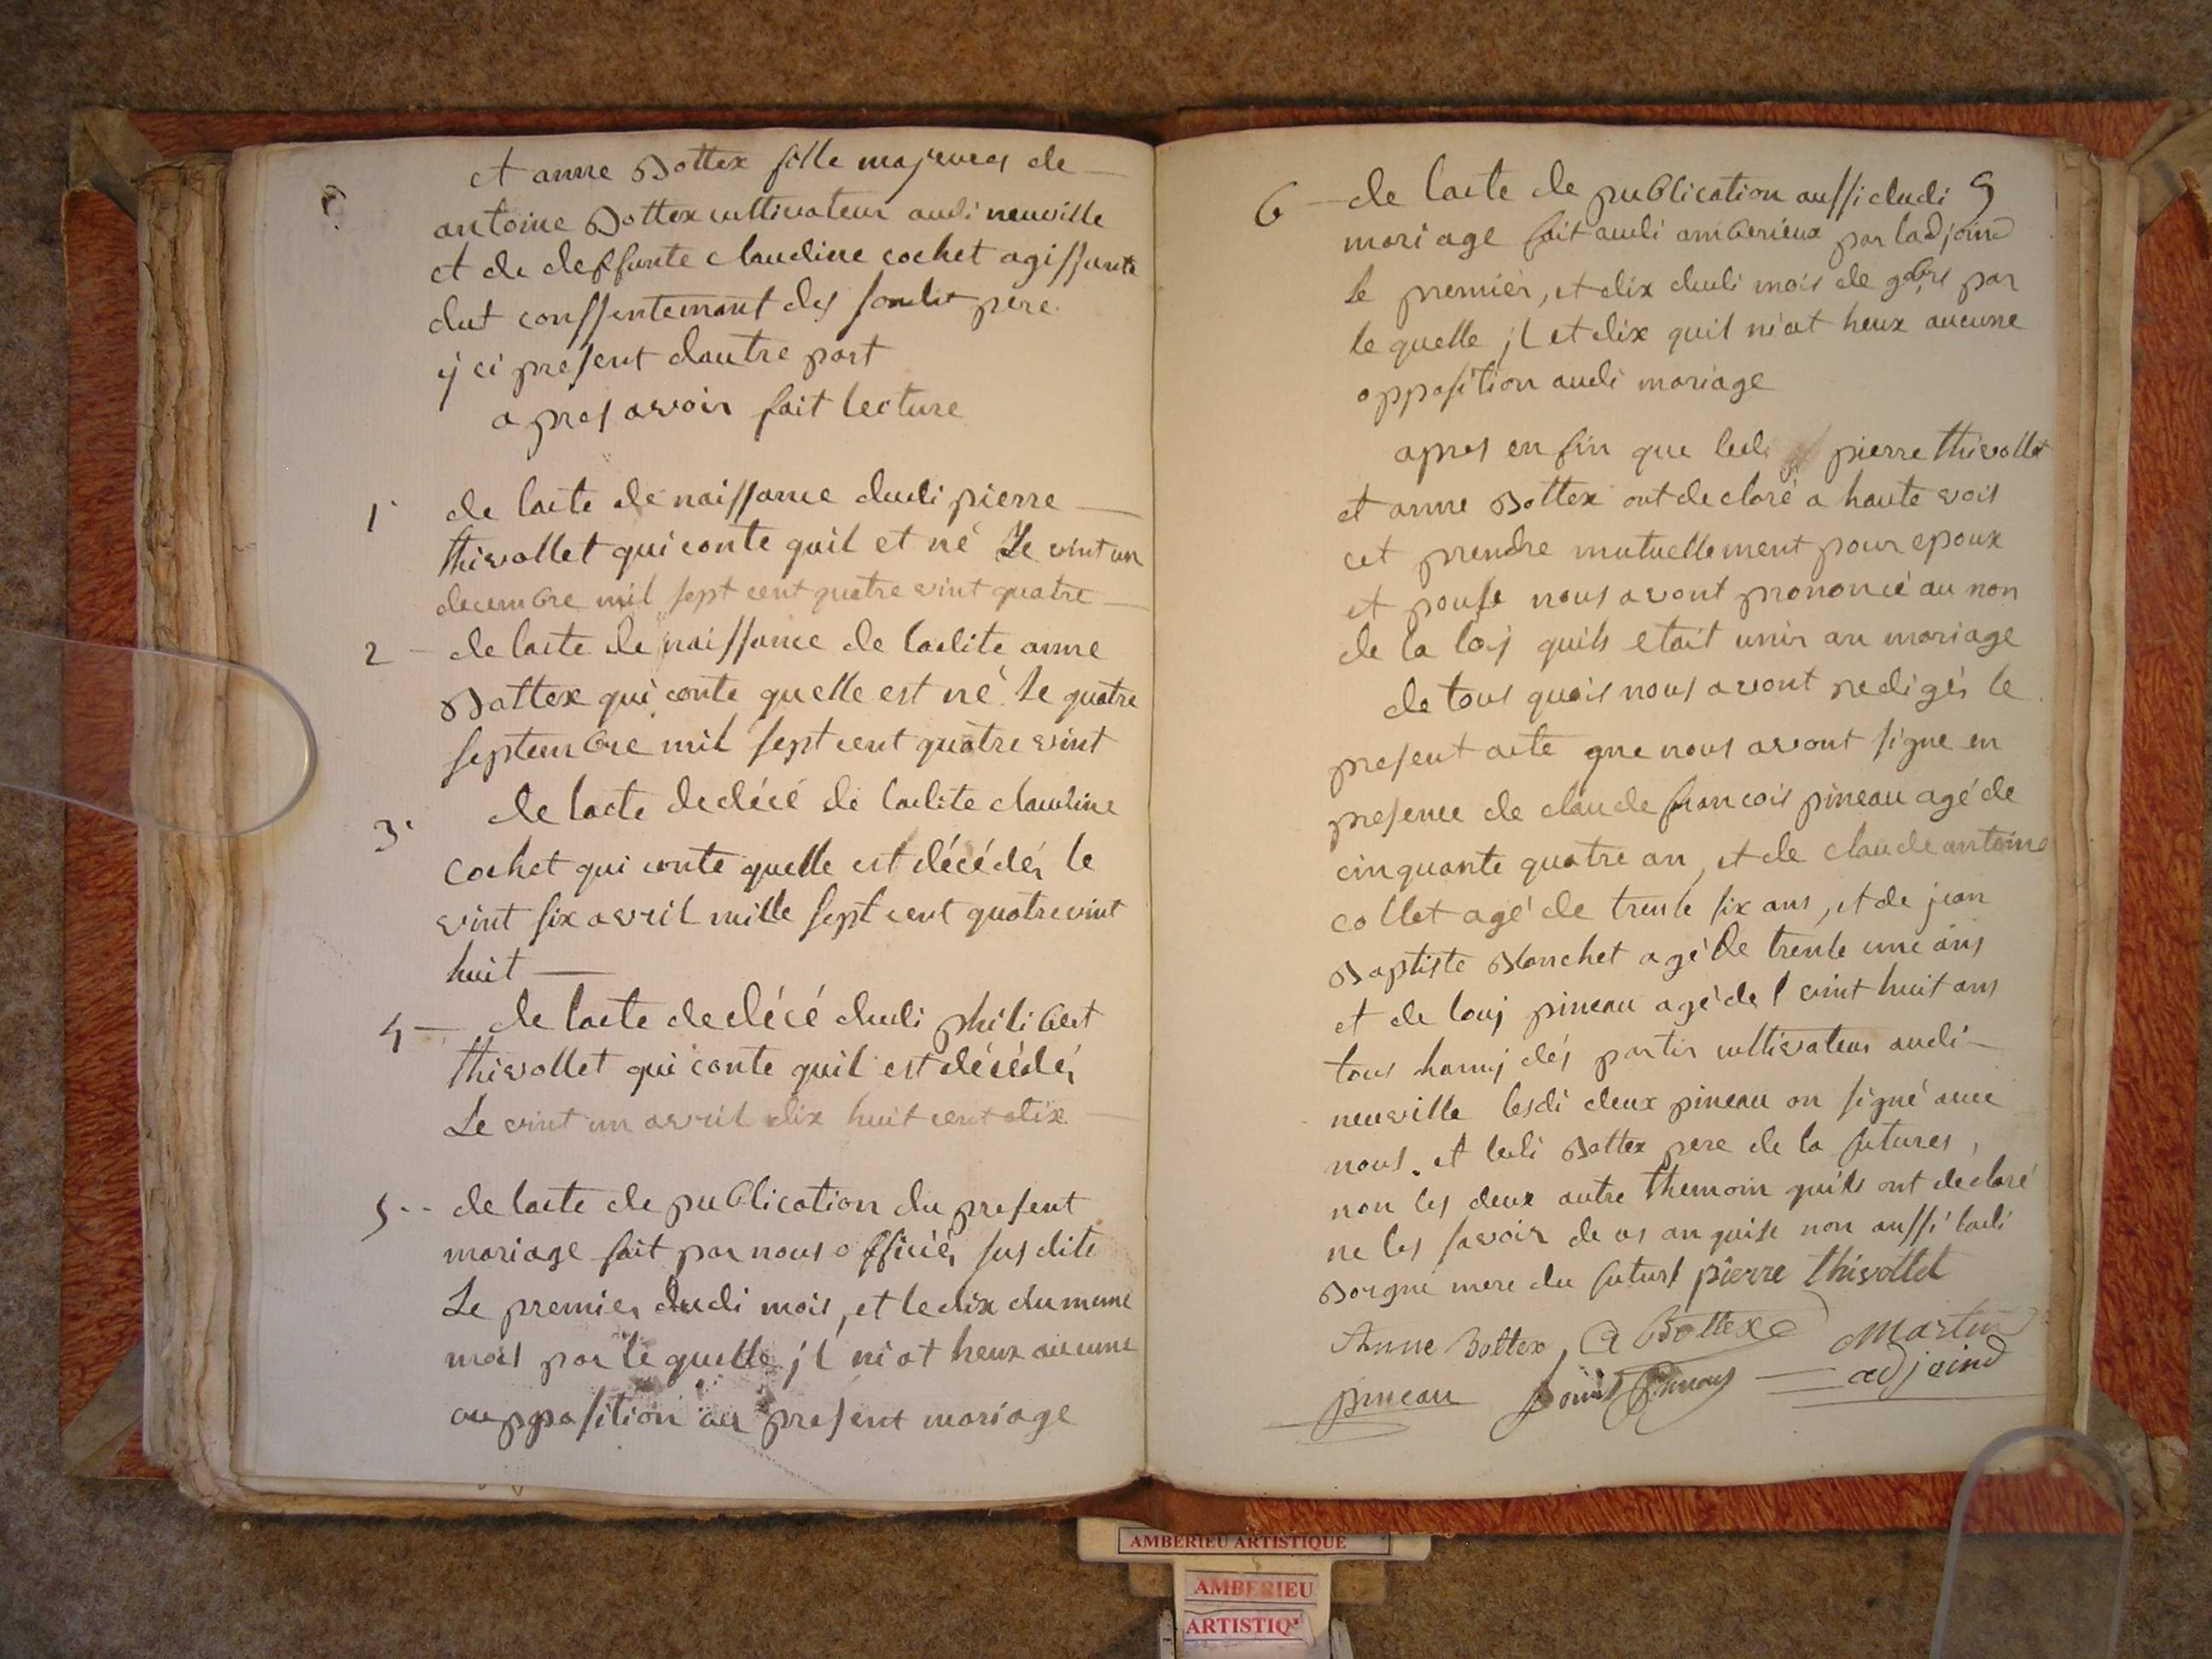 et anne Bottex fille majeures de
antoine Bottex cultivateur audi neuville
et de deffunte claudine cochet agissante
dut conssentemant des sondit pere
y ci present dautre part
apres avoir fait lecture
1 de lacte de naissance dudi pierre
thivollet qui conte quil et né Le vint un
decembre mil sept cent quatre vint quatre
2 - de lacte de naissance de ladite anne
Bottex qui conte quelle est né Le quatre
septembre mil sept cent quatre vint
3 de lacte de décé de ladite claudine
cochet qui conte quelle est décédér le
vint six avril mille sept cent quatre vint
huit
4 - de lacte de décé dudi philibert
thivollet qui conte quil est décédér
Le vint un avril dix huit cent dix
5 -- de lacte de publication du present
mariage fait par nous officiér sus dite
Le premier dudi mois, et le dix du meme
mois par le quelle jl ni at heux aucune
oupposition au present mariage
6 - de lacte de publication aussi dudi 9
mariage fait audi amberieux par ladjoind
le premiér, et dix dudi mois de 9bre par
le quelle jl et dix quil ni at heux aucune
opposition audi mariage
apres en fin que ledi pierre thivollet
et anne Bottex ont declaré a haute vois
cet prendre mutuellement pour epoux
et pouse nous avont prononcé au non
de la loij quils etait unir au mariage
de tous quois nous avont redigér le
present acte que nous avont signe en
presence de claude francois pineau agé de
cinquante quatre an, et de claude antoine
collet agé de trente six ans, et de jean
Baptiste Blanchet agé De trente une ans
et de louj pineau agé de vint huit ans
tous hamij dés partir cultivateur audi
neuville lesdi deux pineau on signé avec
nous. et ledi Bottex pere de la futures,
non les deux autre themoin quils ont déclaré
ne les savoir de os an quise non aussi ladi
Borgne mere du futurt pierre thivollet
Anne Bottex, A Bottex Martin
pineau Louis Pineau adjoind
AMBERIEU ARTISTIQUE
AMBERIEU
ARTISTIQ